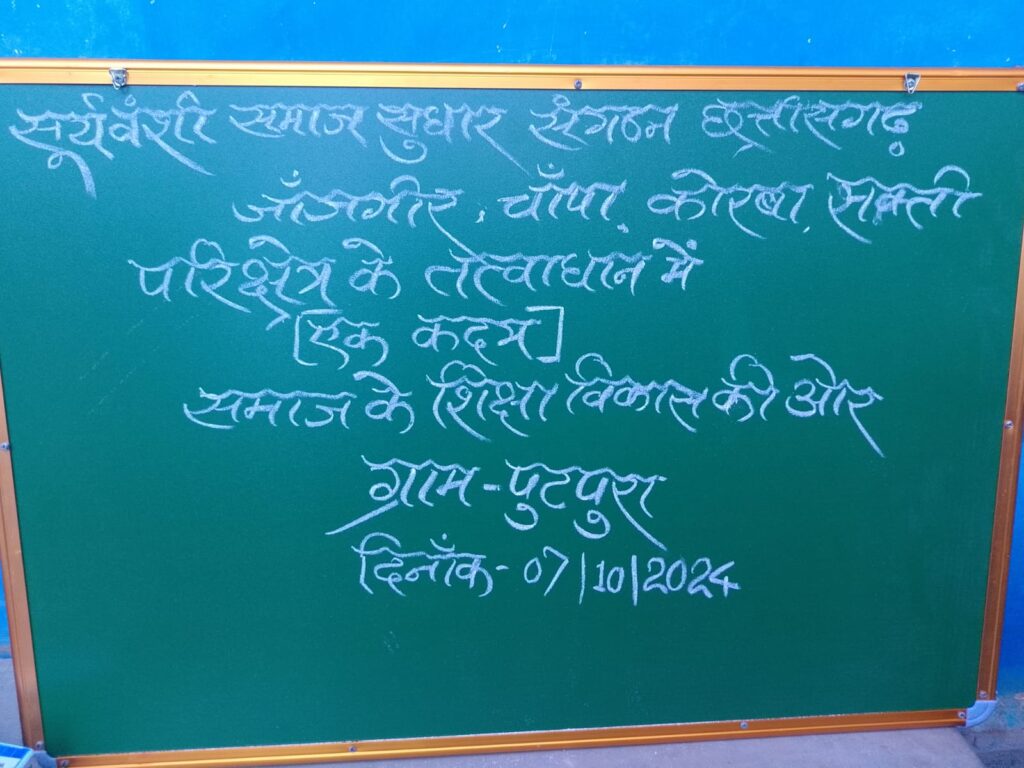 सूर्यवंशी समाज सुधार संगठन छत्तीसगढ़
जाँजगीर, चाँपा, कोरबा, सक्ती
परिक्षेत्र के तत्वाधान में
[एक कदम]
समाज के शिक्षा विकास की ओर
ग्राम-पुटपुरा
दिनाँक-07/10/2024